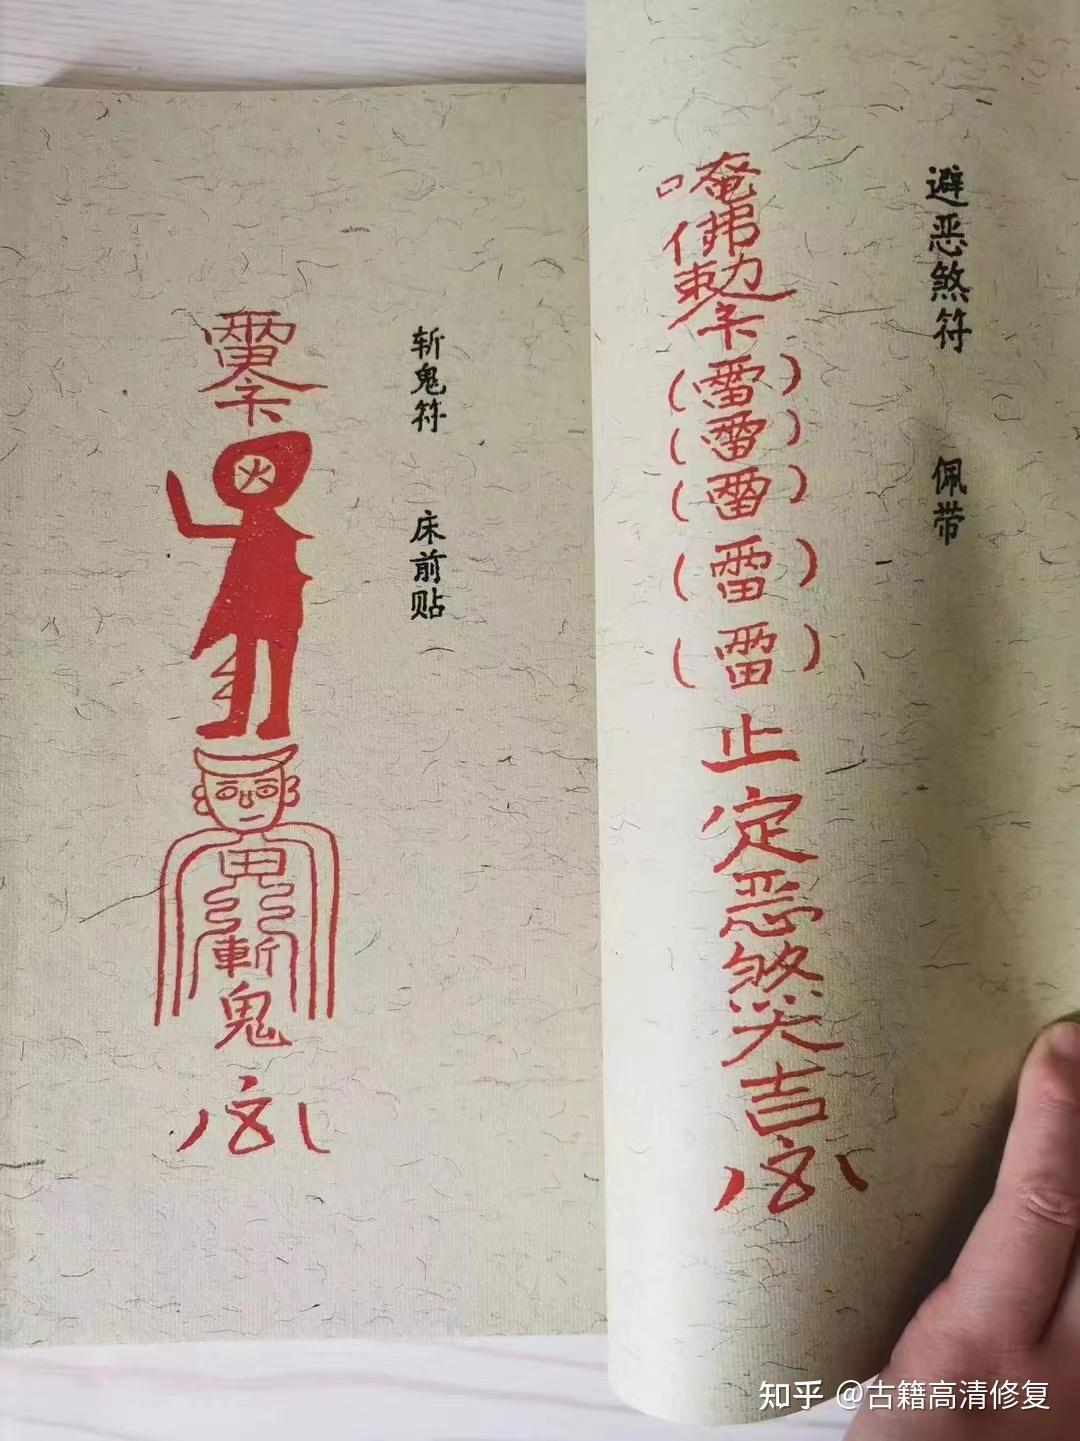 避恶煞符 佩带
唵佛敕令
雷
雷
雷
雷
雷
止定恶煞大吉
斩鬼符 床前贴
雷令
火
田
斬鬼
知乎 @古籍高清修复